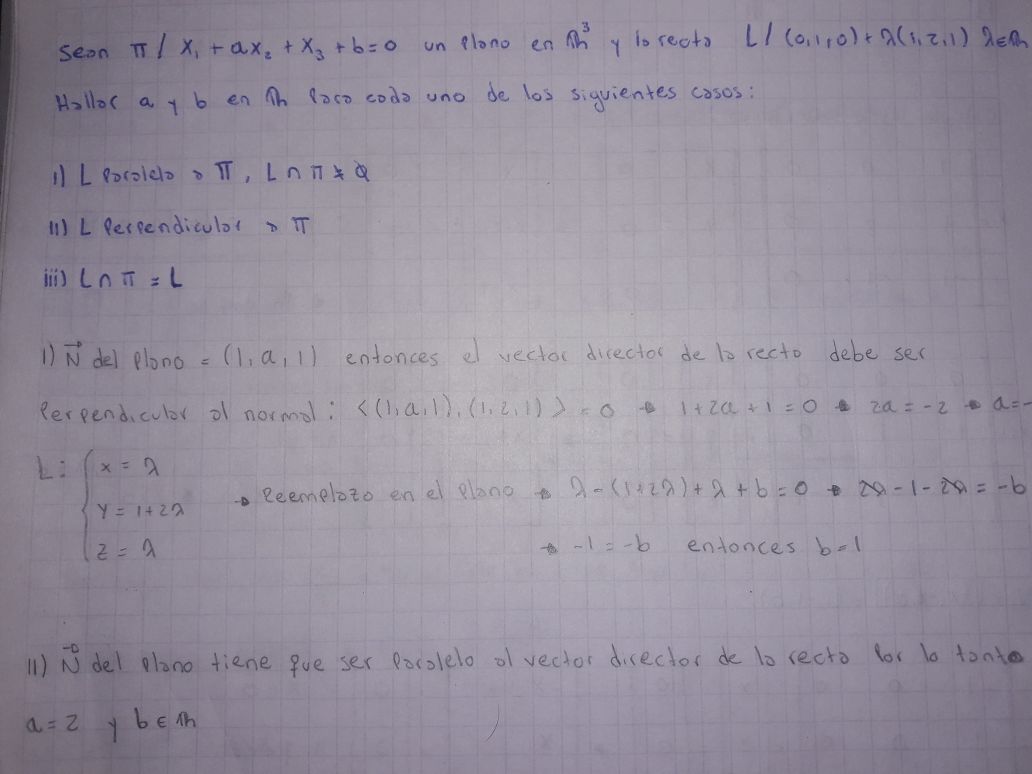 Sean π / x₁ + ax₂ + x₃ + b = 0 un plano en ℝ³ y la recta L / (0,1,0) + λ(1,2,1) λ∈ℝ
Hallar a y b en ℝ para cada uno de los siguientes casos:
i) L Paralela a π, L ∩ π ≠ ∅
ii) L Perpendicular a π
iii) L ∩ π = L
i) N⃗ del plano = (1,a,1) entonces el vector director de la recta debe ser
Perpendicular al normal: <(1,a,1),(1,2,1)> = 0 → 1+2a+1=0 → 2a=-2 → a=-
L: { x = λ
y = 1+2λ → Reemplazo en el plano → λ-(1+2λ)+λ+b=0 → 2λ-1-2λ=-b
z = λ → -1=-b entonces b=1
ii) N⃗ del plano tiene que ser paralelo al vector director de la recta por lo tanto
a=2 y b∈ℝ